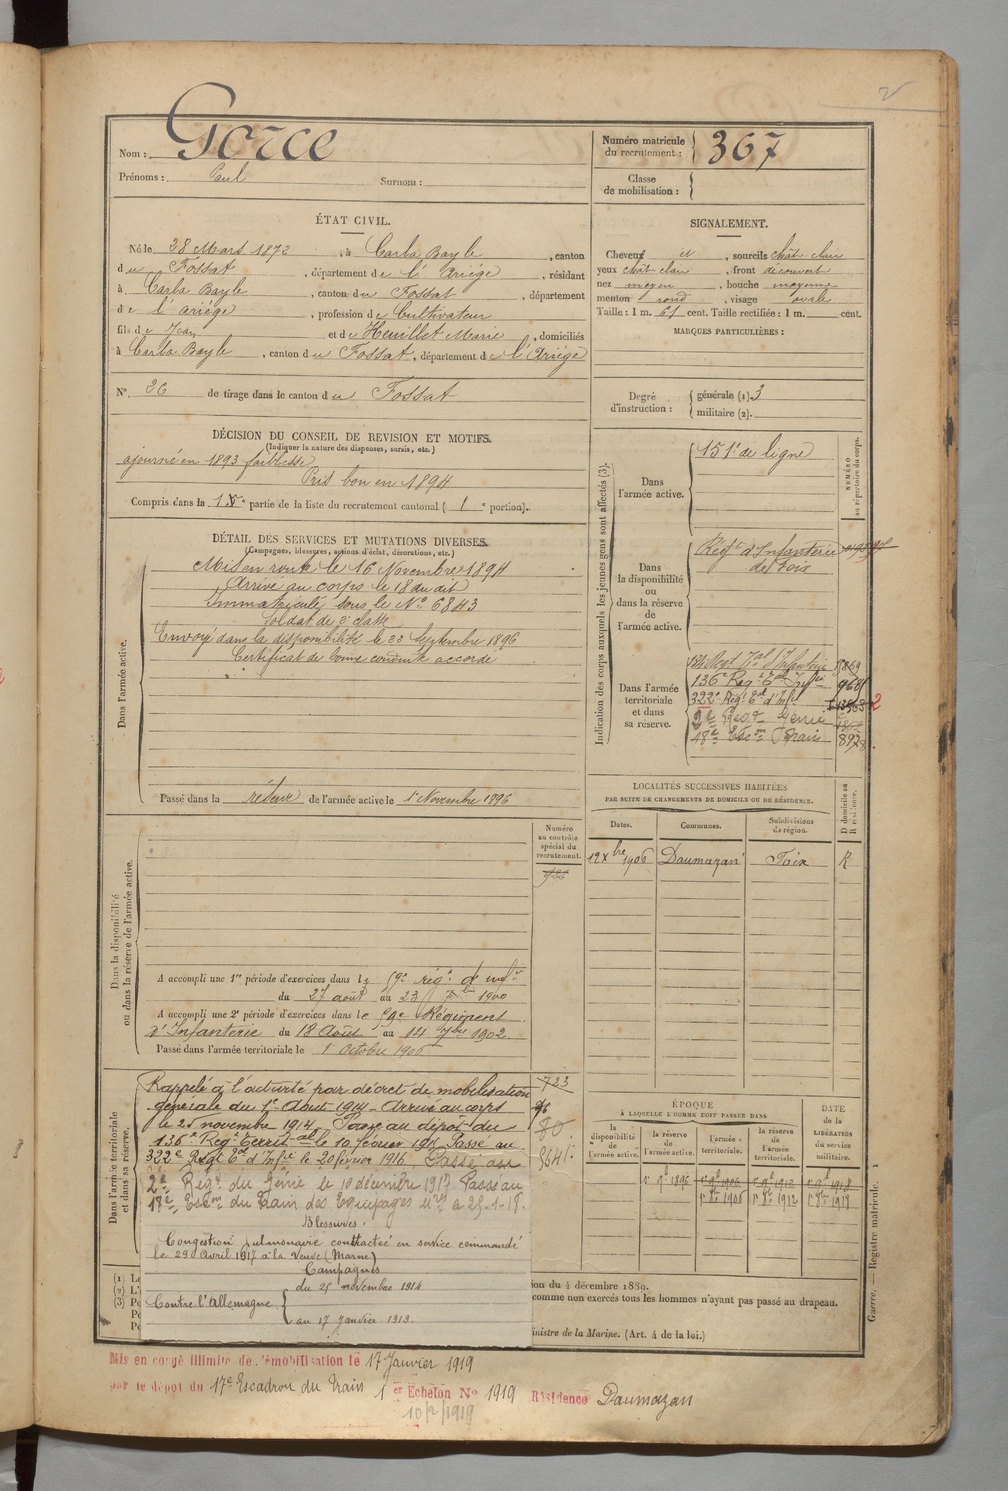 Nom : Gorce
Prénoms : Paul Surnom :
Numéro matricule du recrutement : 367
Classe de mobilisation :
ÉTAT CIVIL.
Né le 28 Mars 1872, à Carla Bayle, canton
du Fossat, département de l'Ariège, résidant
à Carla Bayle, canton du Fossat, département
de l'ariège, profession de Cultivateur
fils de Jean et de Heuillet Marie, domiciliés
à Carla Bayle, canton du Fossat, département de l'Ariège
N° 26 de tirage dans le canton du Fossat
SIGNALEMENT.
Cheveux et, sourcils chât clair
yeux chât clair, front découvert
nez moyen, bouche moyenne
menton rond, visage ovale
Taille : 1 m. 61 cent. Taille rectifiée : 1 m. cent.
MARQUES PARTICULIÈRES :
Degré d'instruction : générale (1) 3
militaire (2).
DÉCISION DU CONSEIL DE REVISION ET MOTIFS.
(Indiquer la nature des dispenses, sursis, etc.)
ajourné en 1893 faiblesse
Pris bon en 1894
Compris dans la 1e partie de la liste du recrutement cantonal ( 1e portion).
DÉTAIL DES SERVICES ET MUTATIONS DIVERSES.
(Campagnes, blessures, actions d'éclat, décorations, etc.)
Dans l'armée active.
Mis en route le 16 Novembre 1894
Arrivé au corps le 18 du dit
Immatriculé sous le No 6843
Soldat de 2e classe
Envoyé dans la disponibilité le 22 Septembre 1896
Certificat de bonne conduite accordé
Passé dans la réserve de l'armée active le 1r Novembre 1896
Indication des corps auxquels les jeunes gens sont affectés (3).
NUMÉRO au répertoire du corps.
Dans l'armée active.
151e de ligne
Dans la disponibilité ou dans la réserve de l'armée active.
Régt d'Infanterie
de Foix
Dans l'armée territoriale et dans sa réserve.
136e Régt Tal Infie
322e Régt Tal d'Infie
2e Génie
18e Escon Train 8928
LOCALITÉS SUCCESSIVES HABITÉES
PAR SUITE DE CHANGEMENTS DE DOMICILE OU DE RÉSIDENCE.
Dates. Communes. Subdivisions de région. D domicile ou R résidence.
12 Xbre 1906 Daumazan Foix R
Dans la disponibilité ou dans la réserve de l'armée active.
Numéro au contrôle spécial du recrutement.
A accompli une 1re période d'exercices dans le 59e régt d'infie
du 27 août au 23 7bre 1900
A accompli une 2e période d'exercices dans le 59e Régiment
d'Infanterie du 18 Août au 14 7bre 1902.
Passé dans l'armée territoriale le 1r octobre 1906
Dans l'armée territoriale et dans sa réserve.
Rappelé à l'activité par décret de mobilisation
générale du 1er Août 1914 - Arrivé au corps
le 25 novembre 1914. Passé au dépôt du
136e Régt Territal le 10 février 1915 Passé au
322e Régt Tal d'Infie le 20 février 1916. Passé au
2e Régt du Génie le 10 décembre 1917. Passé au
18e Escon du Train des Equipages Mres le 25-1-18.
Blessures :
Congestion pulmonaire contractée en service commandé
le 29 Avril 1917 à la Veuve (Marne)
Campagnes
Contre l'Allemagne
du 25 novembre 1914
au 17 Janvier 1919.
723
80
ÉPOQUE
À LAQUELLE L'HOMME DOIT PASSER DANS
la disponibilité de l'armée active. la réserve de l'armée active. l'armée territoriale. la réserve de l'armée territoriale.
DATE de la LIBÉRATION du service militaire.
1r 9bre 1896
(1) Le
(2) L'
(3) Po
Po
Po
ion du 4 décembre 1889.
comme non exercés tous les hommes n'ayant pas passé au drapeau.
inistre de la Marine. (Art. 4 de la loi.)
Guerre. — Registre matricule. 1
Mis en congé illimité de démobilisation le 17 Janvier 1919
par le dépôt du 17e Escadron du Train 1er Echelon No 1919 Résidence Daumazan
10/2/1919